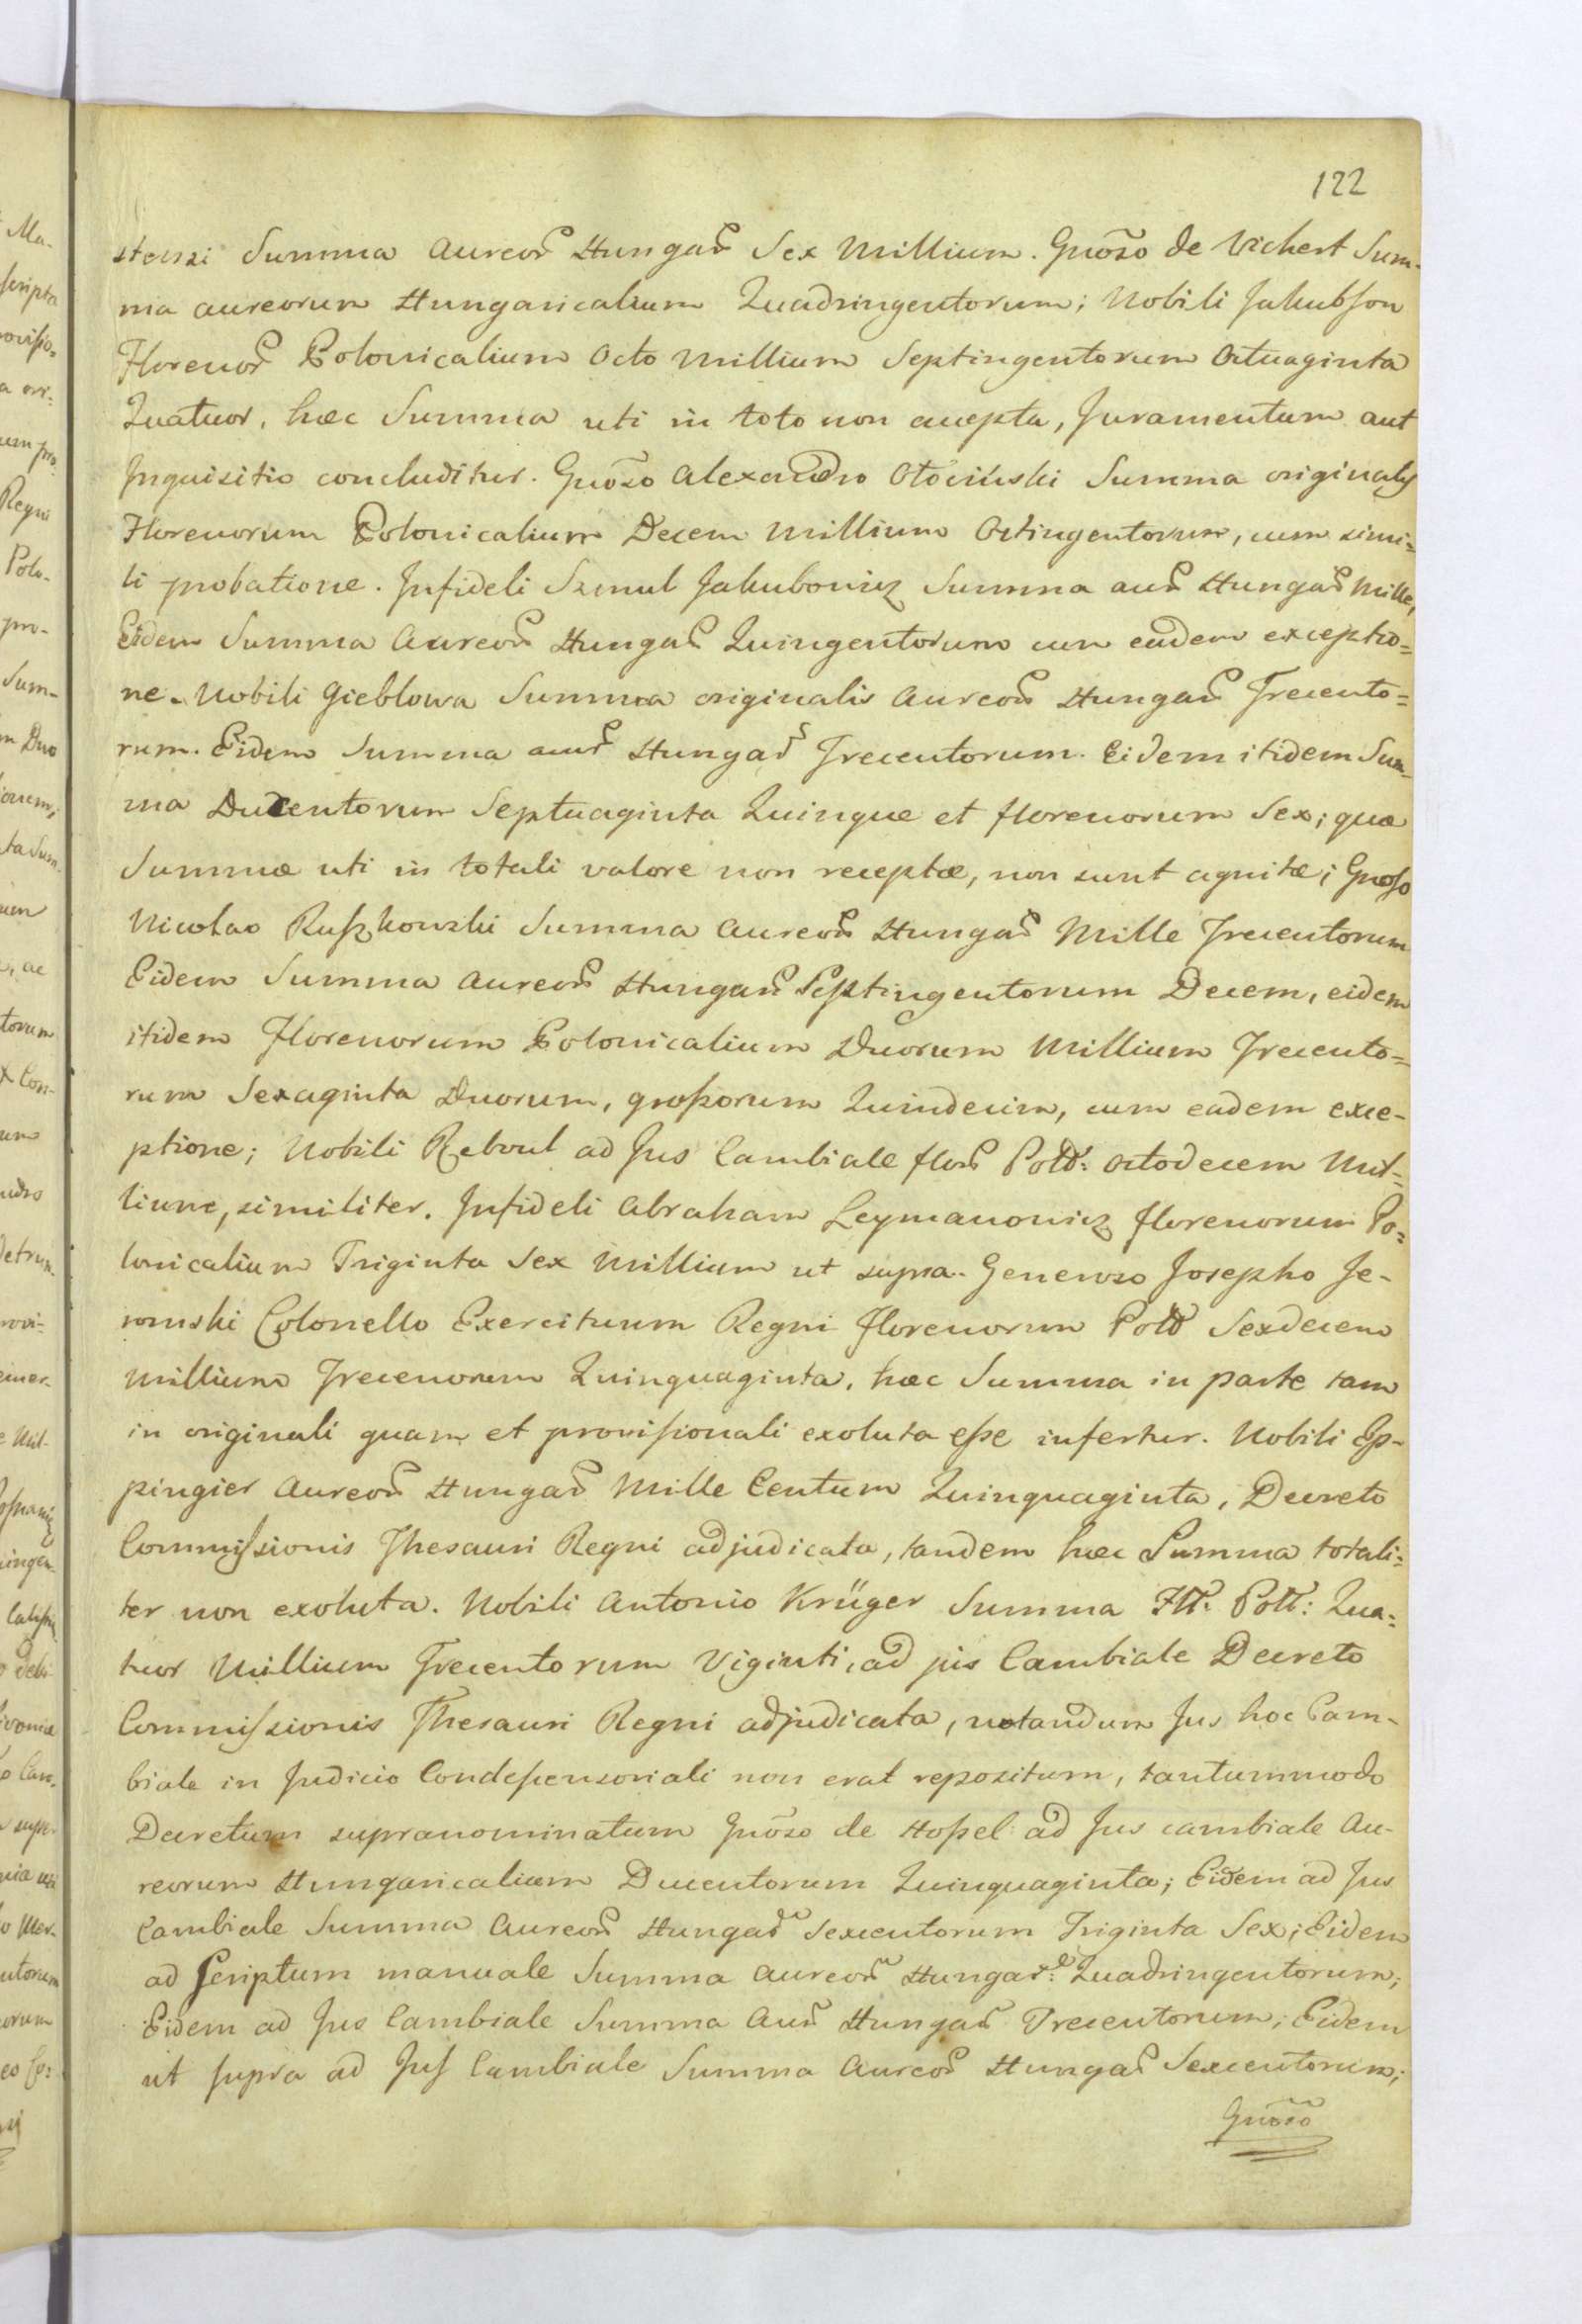 122
stenzi Summa Aureor Hungar Sex Millium. Gnõso de Wichert Sum-
ma aureorum Hungaricalium Quadringentorum; Nobili Jakubson
Florenor Polonicalium Octo Millium Septingentorum Octuaginta
Quatuor, hæc Summa uti in toto non accepta, Juramentum aut
Inquisitio concluditur. Gnõso Alexandro Otociński Summa originalis
Florenorum Polonicalium Decem Millium Octingentorum, cum simi=
li probatione. Infideli Szmul Jakubowicz Summa aur Hungar Mille,
Eidem Summa Aureor Hungar Quingentorum cum eadem exceptio=
ne. Nobili Gieblowa Summa originalis Aureor Hungar Trecento=
rum. Eidem Summa aur Hungar Trecentorum. Eidem itidem Sum-
ma Ducentorum Septuaginta Quinque et florenorum Sex; quæ
Summæ uti in totali valore non receptæ, non sunt agnitæ; Gnoso
Nicolao Ruszkowski Summa Aureor Hungar Mille Trecentorum
Eidem Summa Aureor Hungar Septingentorum Decem, eidem
itidem Florenorum Polonicalium Duorum Millium Trecento=
rum Sexaginta Duorum, grossorum Quindecim, cum eadem exce-
ptione; Nobili Reboul ad Jus Cambiale flor Poll: Octodecem Mil=
lium, similiter. Infideli Abraham Leymanowicz florenorum Po=
lonicalium Triginta Sex Millium ut supra. Generoso Josepho Je-
romski Colonello Exercituum Regni Florenorum Poll Sexdecem
Millium Trecenorum Quinquaginta, hæc Summa in parte tam
in originali quam et provisionali exoluta esse infertur. Nobili Ep-
pingier Aureor Hungar Mille Centum Quinquaginta, Decreto
Commissionis Thesauri Regni adjudicata, tandem hæc Summa totali=
ter non exoluta. Nobili Antonio Krüger Summa Fll: Poll: Qua=
tuor Millium Trecentorum Viginti, ad jus Cambiale Decreto
Commissionis Thesauri Regni adjudicata, notandum Jus hoc Cam-
biale in Judicio Condescensoriali non erat repositum, tantummodo
Decretum supranominatum Gnõso de Hossel ad Jus cambiale Au-
reorum Hungaricalium Ducentorum Quinquaginta; Eidem ad Jus
Cambiale Summa Aureor Hungar Sexcentorum Triginta Sex; Eidem
ad Scriptum manuale Summa Aureor Hungar: Quadringentorum;
Eidem ad Jus Cambiale Summa Aur Hungar Trecentorum; Eidem
ut supra ad Jus Cambiale Summa Aureor Hungar Sexcentorum;
Gnõso